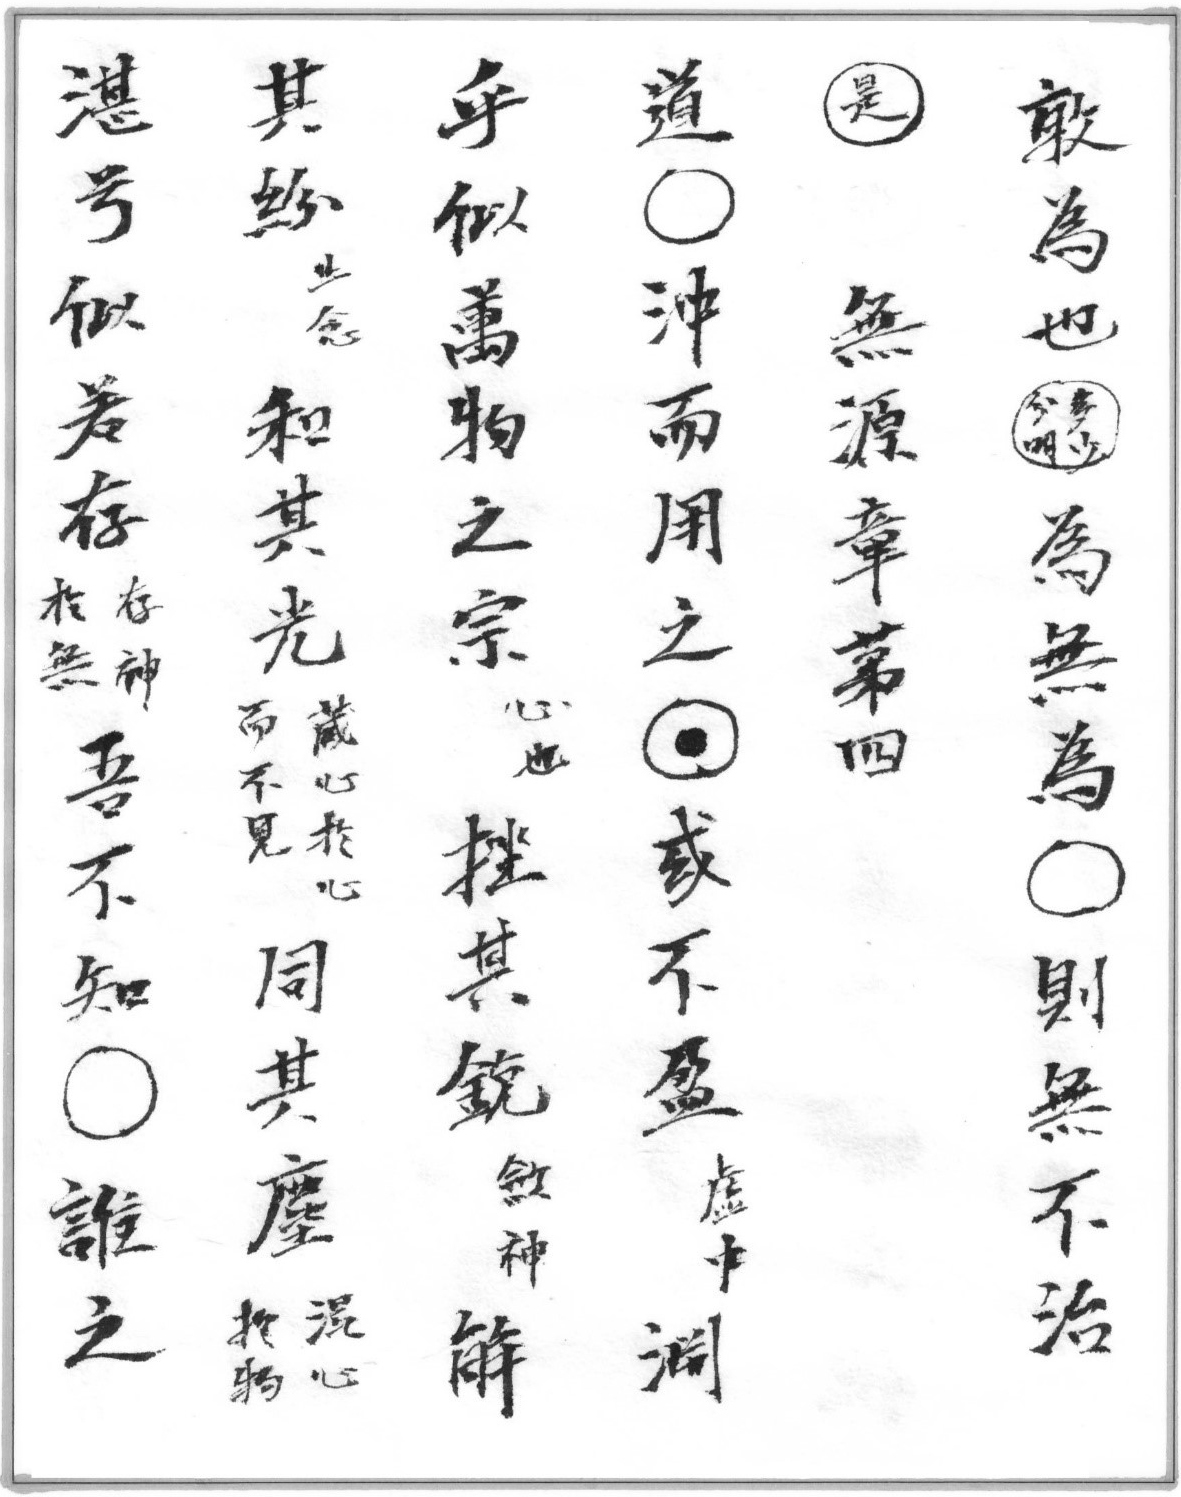 敢為也多少分明為無為○則無不治
是 無源章第四
道○沖而用之⊙或不盈虛中淵
乎似萬物之宗心也挫其銳斂神解
其紛止念和其光藏心於心而不見同其塵混心於物
湛兮似若存存神於無吾不知○誰之